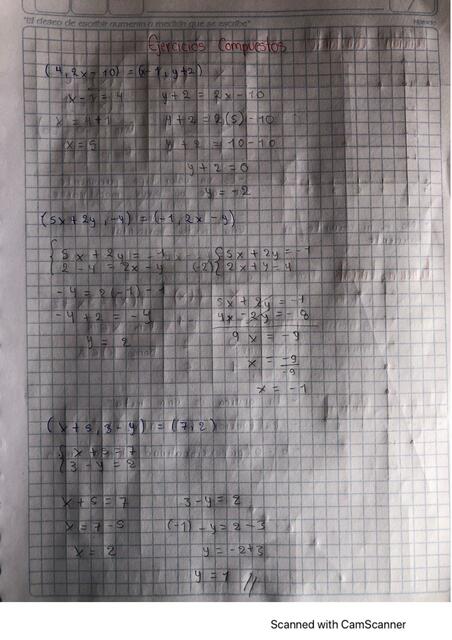 "El deseo de escribir aumenta a medida que se escribe"
Ejercicios Compuestos
(4, 2x - 10) = (x - 1, y + 2)
x - 1 = 4 y + 2 = 2x - 10
x = 4 + 1 y + 2 = 2(5) - 10
x = 5 y + 2 = 10 - 10
y + 2 = 0
y = -2
(5x + 2y, -4) = (-1, 2x - y)
5x + 2y = -1 5x + 2y = -1
- 4 = 2x - y (-2) 2x + y = 4
-4 = 2(-1) - y
5x + 2y = -1
-4 + 2 = -y 4x - 2y = -8
y = 2 9x = -9
x = -9
-9
x = -1
(x + 5, 3 - y) = (7, 2)
x + 5 = 7
3 - y = 2
x + 5 = 7 3 - y = 2
x = 7 - 5 (-1) - y = 2 - 3
x = 2 y = -2 + 3
y = 1 //
Scanned with CamScanner